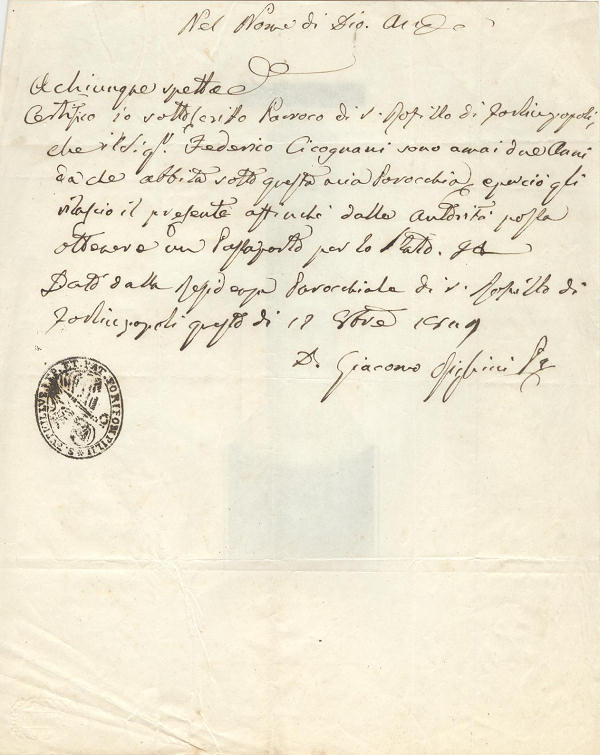 Nel Nome di Dio. 
A chiunque spetta
Certifico io sottoscrito Paroco di S. Rofillo di Forlimpopoli,
che il Sigr. Federico Cicognani sono amai due Anni
da che abbita sotto questa mia Parocchia, e perciò gli
rilascio il presente affinchè dalla autorità possa
ottenere un Passaporto per lo Stato.
Dato dalla Residenza Parocchiale di S. Rofillo di
Forlimpopoli questo di
D. Giacomo
ET PAT. FORIPOMPILII